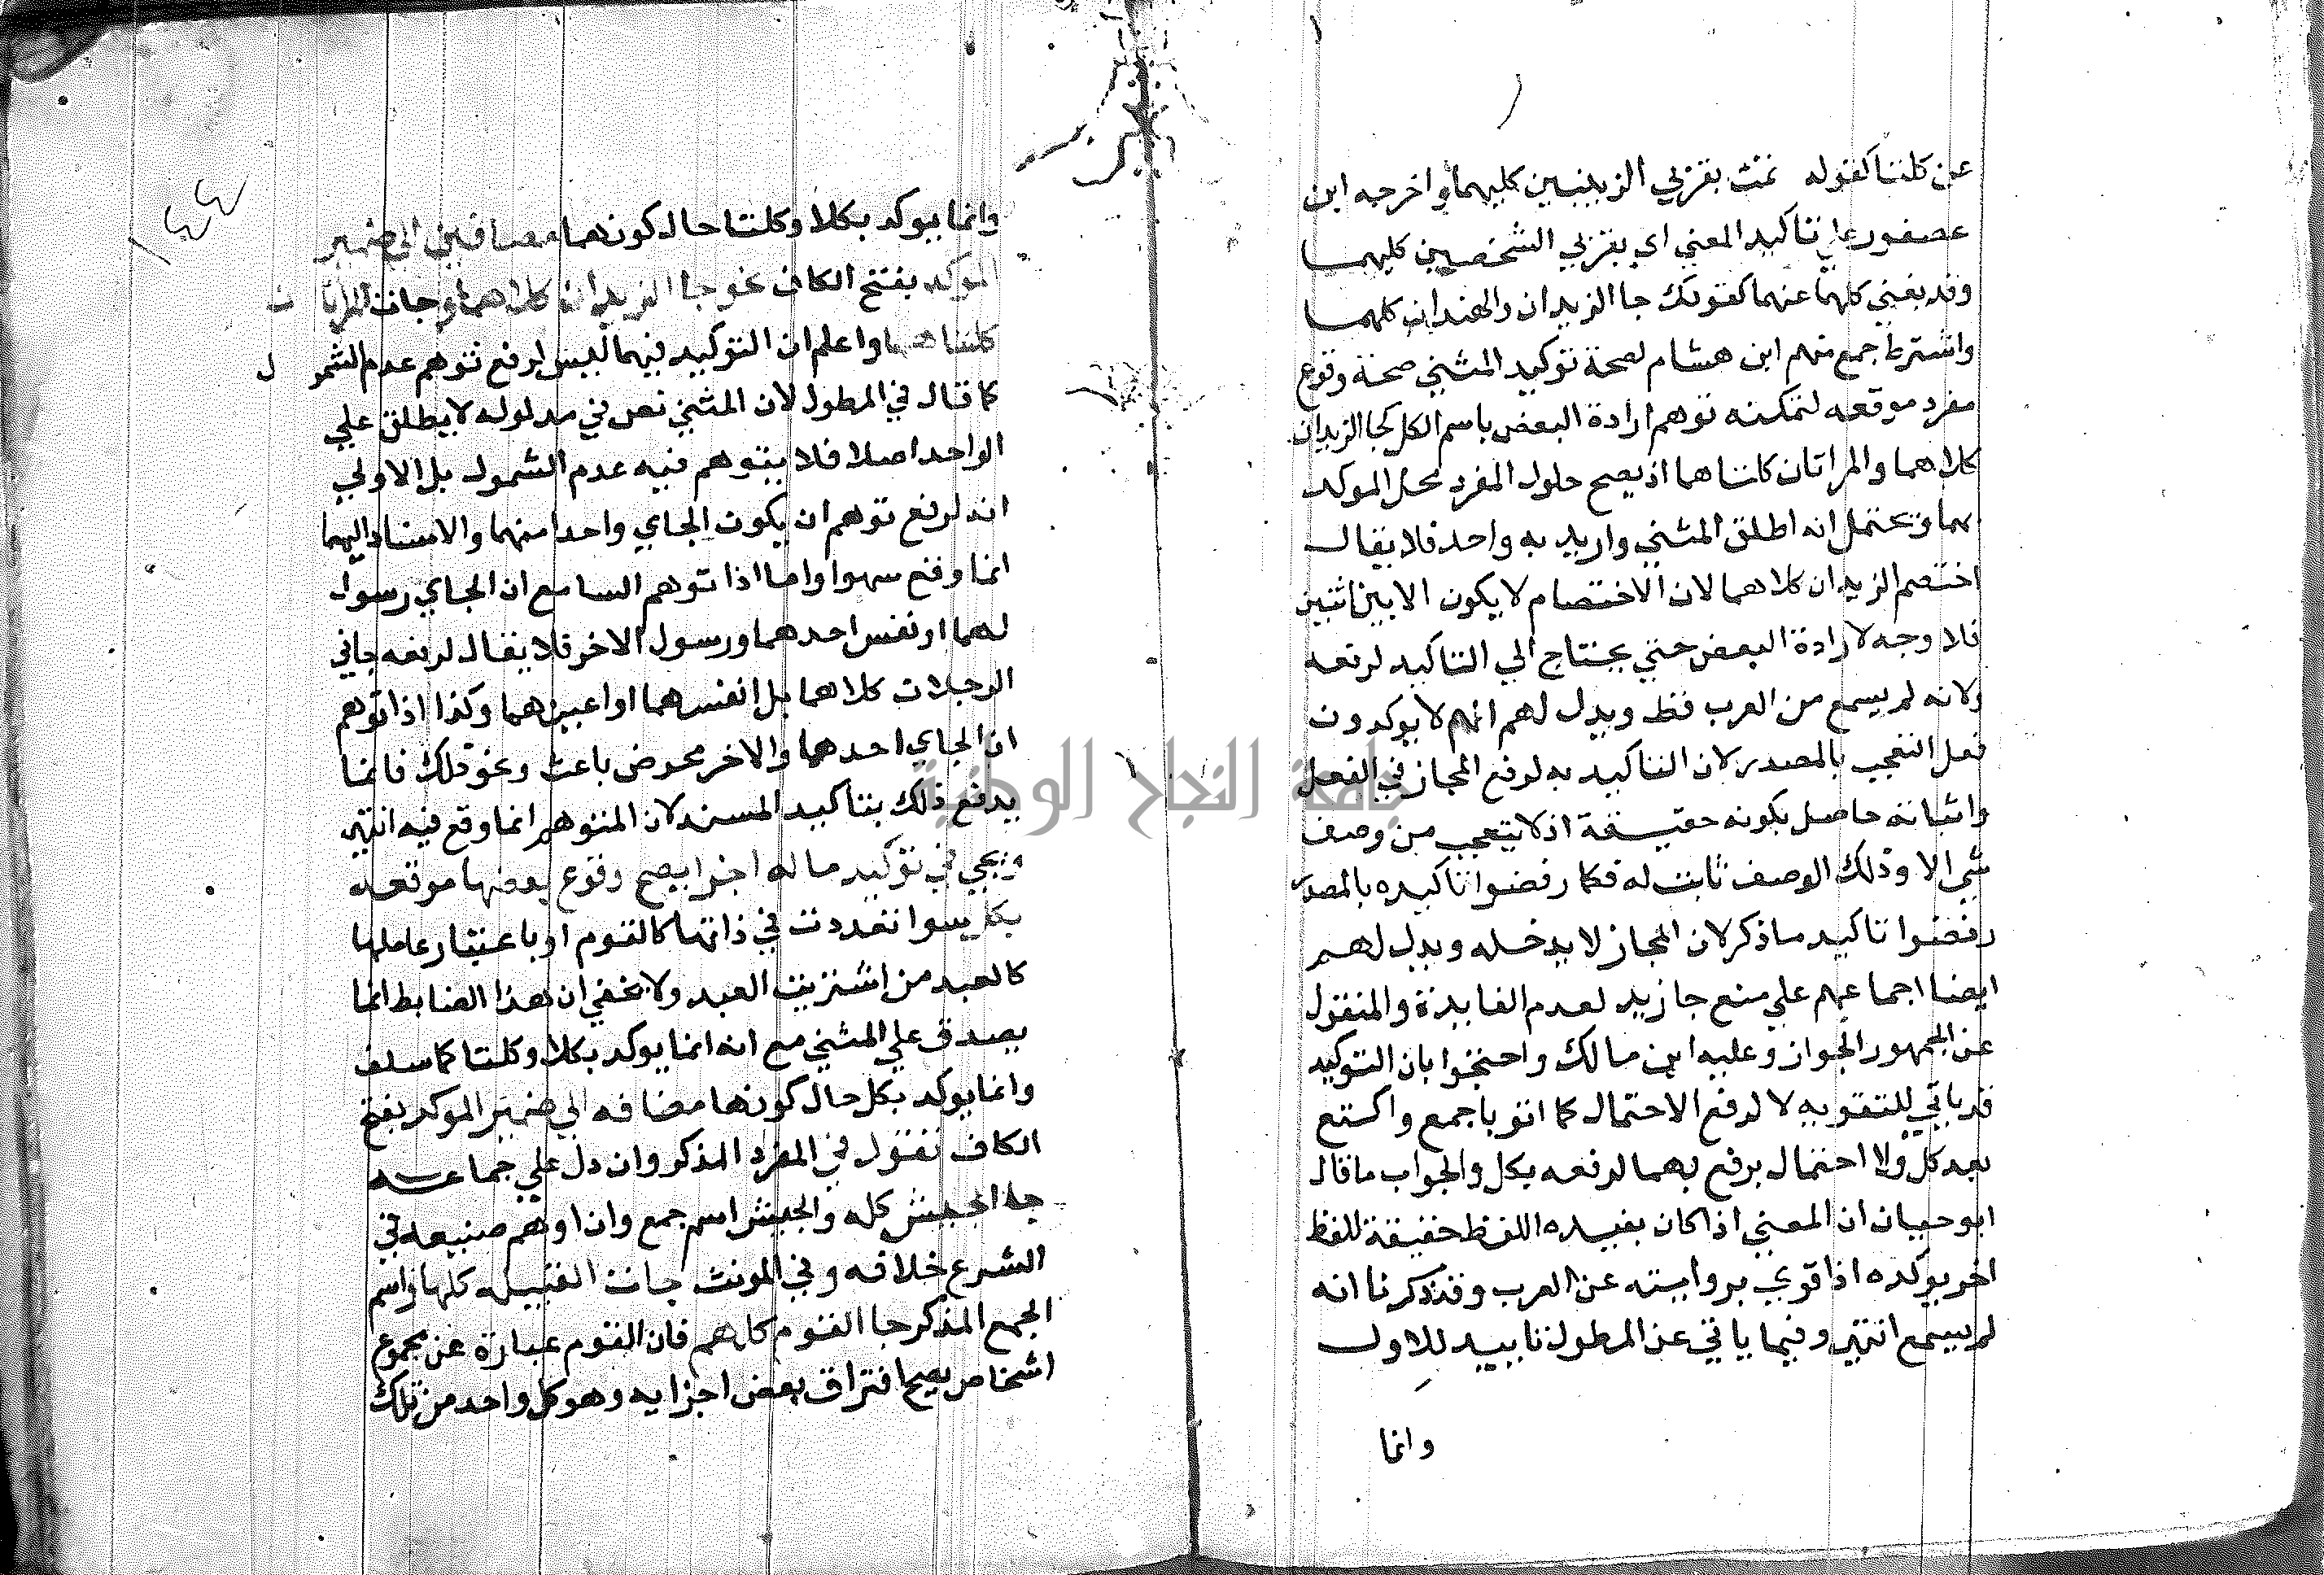 عن كلتا كقوله تمت بقربي الزينبين كليهما واخرجه ابن
عصفور علي تاكيد المعني اي بقربي الشخصين كليهما
وقد يغني كلهما عنهما كقولك جا الزيدان والهندان كلهما
واشترط جمع منهم ابن هشام لصحة توكيد المثني صحة وقوع
مفرد موقعه لتمكنه توهم ارادة البعض باسم الكل كجا الزيدان
كلاهما والمراتان كلتاهما اذ يصح حلول المفرد محل الموكد
بهما ويحتمل انه اطلق المثني واريد به واحد فلا يقال
اختصم الزيدان كلاهما لان الاختصام لا يكون الا بين اثنين
فلا وجه لارادة البعض حتي يحتاج الي التاكيد لرفعه
ولانه لم يسمع من العرب قط ويدل لهم انهم لا يوكدون
فعل التعجب بالمصدر لان التاكيد به لرفع المجاز في الفعل
واثباته حاصل بكونه حقيقة اذ لا يتعجب من وصف
شي الا وذلك الوصف ثابت له فكما رفضوا تاكيده بالمصدر
رفضوا تاكيد ما ذكر لان المجاز لا يدخله ويدل لهم
ايضا اجماعهم علي منع جا زيد لعدم الفايدة والمنقول
عن الجمهور الجواز وعليه ابن مالك واحتجوا بان التوكيد
قد ياتي للتقويه لا لرفع الاحتمال كما اتو باجمع واكتع
بعد كل ولا احتمال يرفع بهما لرفعه بكل والجواب ما قال
ابو حيان ان المعني اذا كان يفيده اللفظ حقيقة للفظ
اخر يوكده اذا قوي بروايته عن العرب وقد ذكرنا انه
لم يسمع انتهي وفيما ياتي عن المطول تاييد للاول
وانما
١٤٤
وانما يوكد بكلا وكلتا حال كونهما مضافين الي ضمير
الموكد بفتح الكاف نحو جا الزيدان كلاهما وجات المراتان
كلتاهما واعلم ان التوكيد فيهما ليس لرفع توهم عدم الشمول
كما قال في المطول لان المثني نص في مدلوله لا يطلق علي
الواحد اصلا فلا يتوهم فيه عدم الشمول بل الاولي
انه لرفع توهم ان يكون الجاي واحدا منهما والاسناد اليهما
انما وقع سهوا واما اذا توهم السامع ان الجاي رسول
لهما او نفس احدهما ورسول الاخر فلا يقال لرفعه جاني
الرجلان كلاهما بل انفسهما او اعينهما وكذا اذا توهم
ان الجاي احدهما والاخر محرض باعث ونحو ذلك فانما
يدفع ذلك بتاكيد المسند لان المتوهم انما وقع فيه انتهي
ويجي في توكيد ما له اجزا يصح وقوع بعضها موقعه
بكل سوا تعددت في ذاتها كالقوم او باعتبار عاملها
كالعبد من اشتريت العبد ولا يخفي ان هذا الضابط انما
يصدق علي المثني مع انه انما يوكد بكلا وكلتا كما سلف
وانما يوكد بكل حال كونها مضافه الي ضمير الموكد بفتح
الكاف تقول في المفرد المذكر وان دل علي جماعه
جا الجيش كله والجيش اسم جمع وان اوهم صنيعه في
الشرع خلافه وفي المونث جات القبيله كلها واسم
الجمع المذكر جا القوم كلهم فان القوم عبارة عن مجموع
اشخاص يصح افتراق بعض اجزايه وهو كل واحد من تلك
جامعة النجاح الوطنية